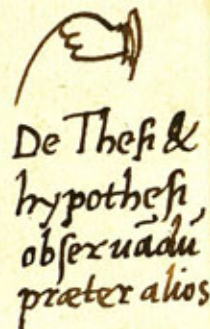 De Theſi &
hypotheſi,
obſeruādū
præter alios